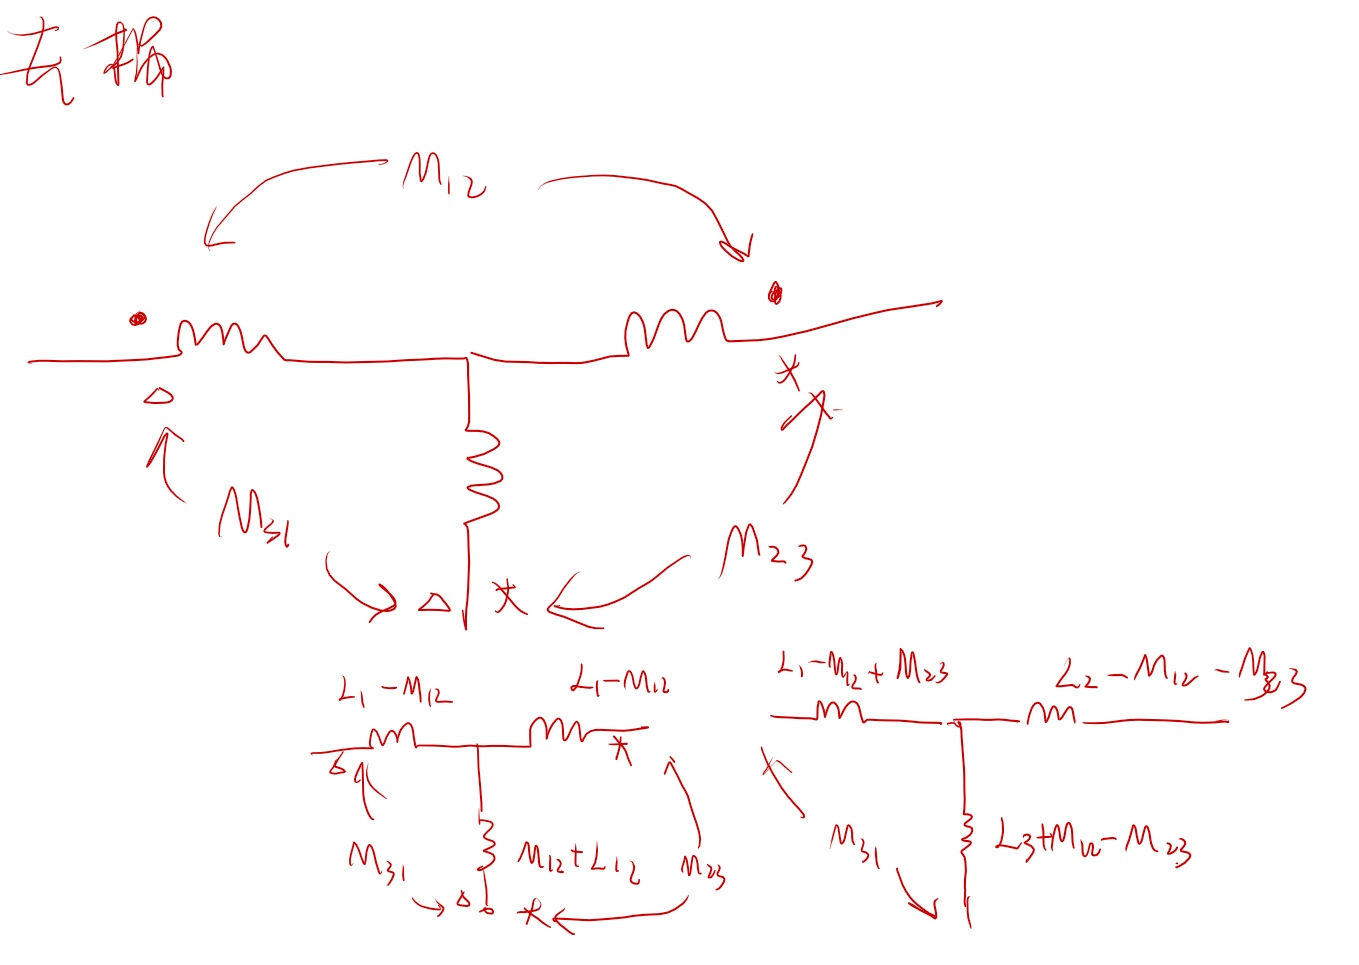 去耦
M12
M31
M23
L1-M12
L1-M12
M31
M12+L12
M23
L1-M12+M23
L2-M12-M23
M31
L3+M12-M23